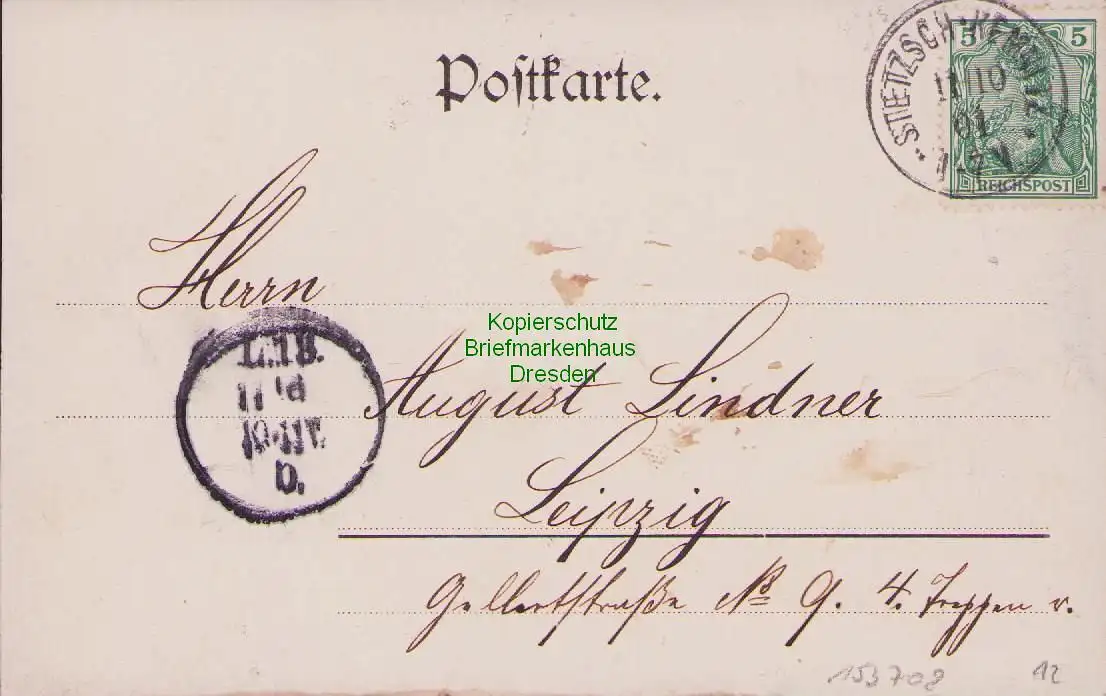 Postkarte.
5 5
STETZSCH-KEMNITZ
11/10
01
REICHSPOST
Herrn
Kopierschutz
Briefmarkenhaus
Dresden
August Lindner
Leipzig
Gellertstraße No 9. 4. Treppen r.
D.
153708 12